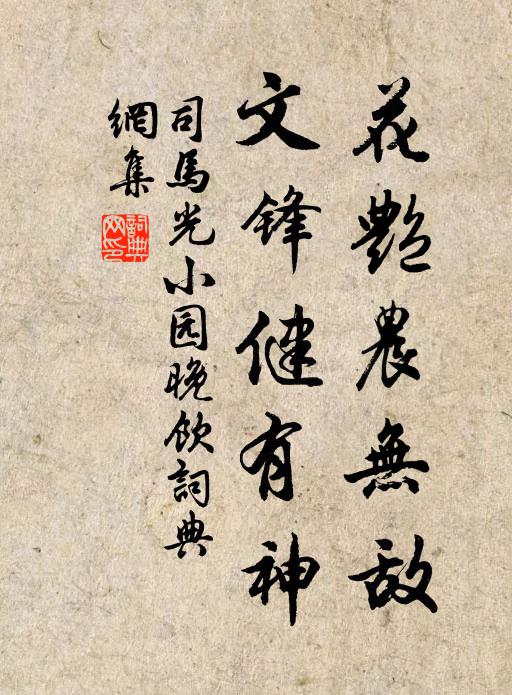 花艷農無敌
文锋健有神
司馬光小园晚飲詞典
網集
詞典网印